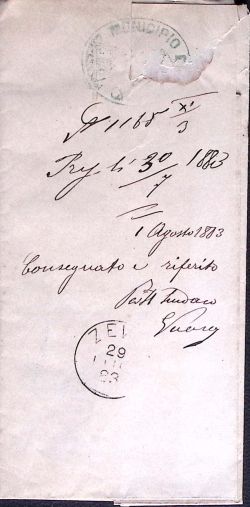 MUNICIPIO
N 1165 XI/3
30/7 1883
1 Agosto 1883
Consegnato e riferito
Sindaco
ZEI
29
83